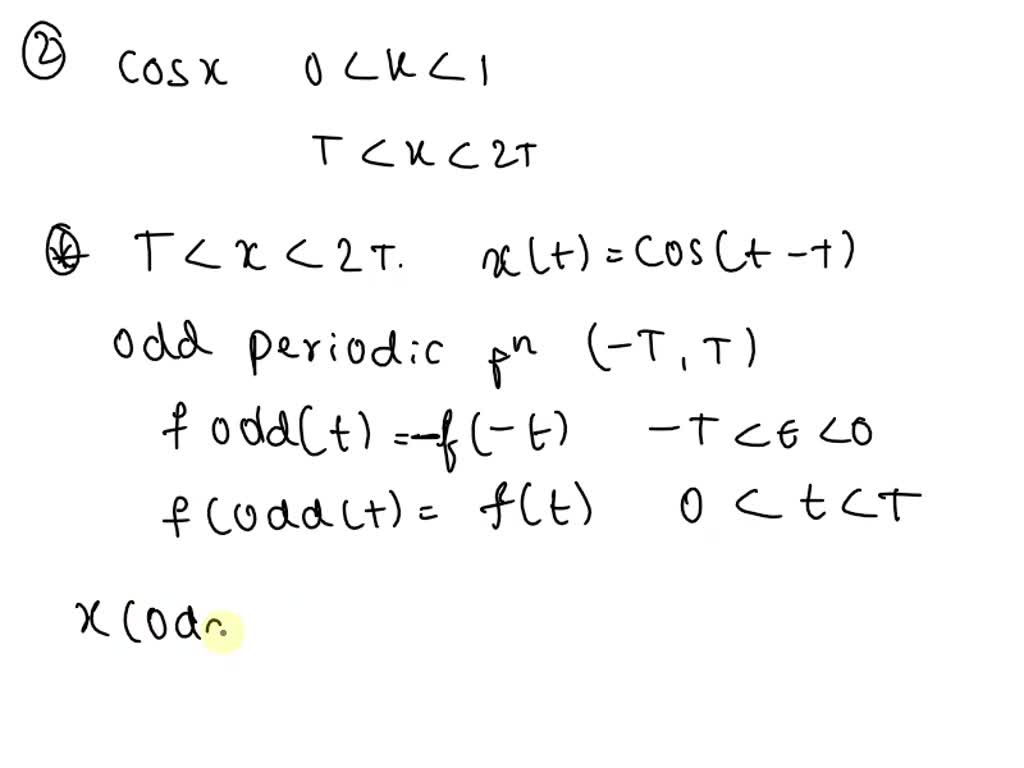 ② cosx 0 < x < 1
T < x < 2T
⊛ T < x < 2T. x(t) = cos(t - T)
odd periodic fⁿ (-T, T)
f odd(t) = -f(-t) -T < t < 0
f(odd(t) = f(t) 0 < t < T
x(od